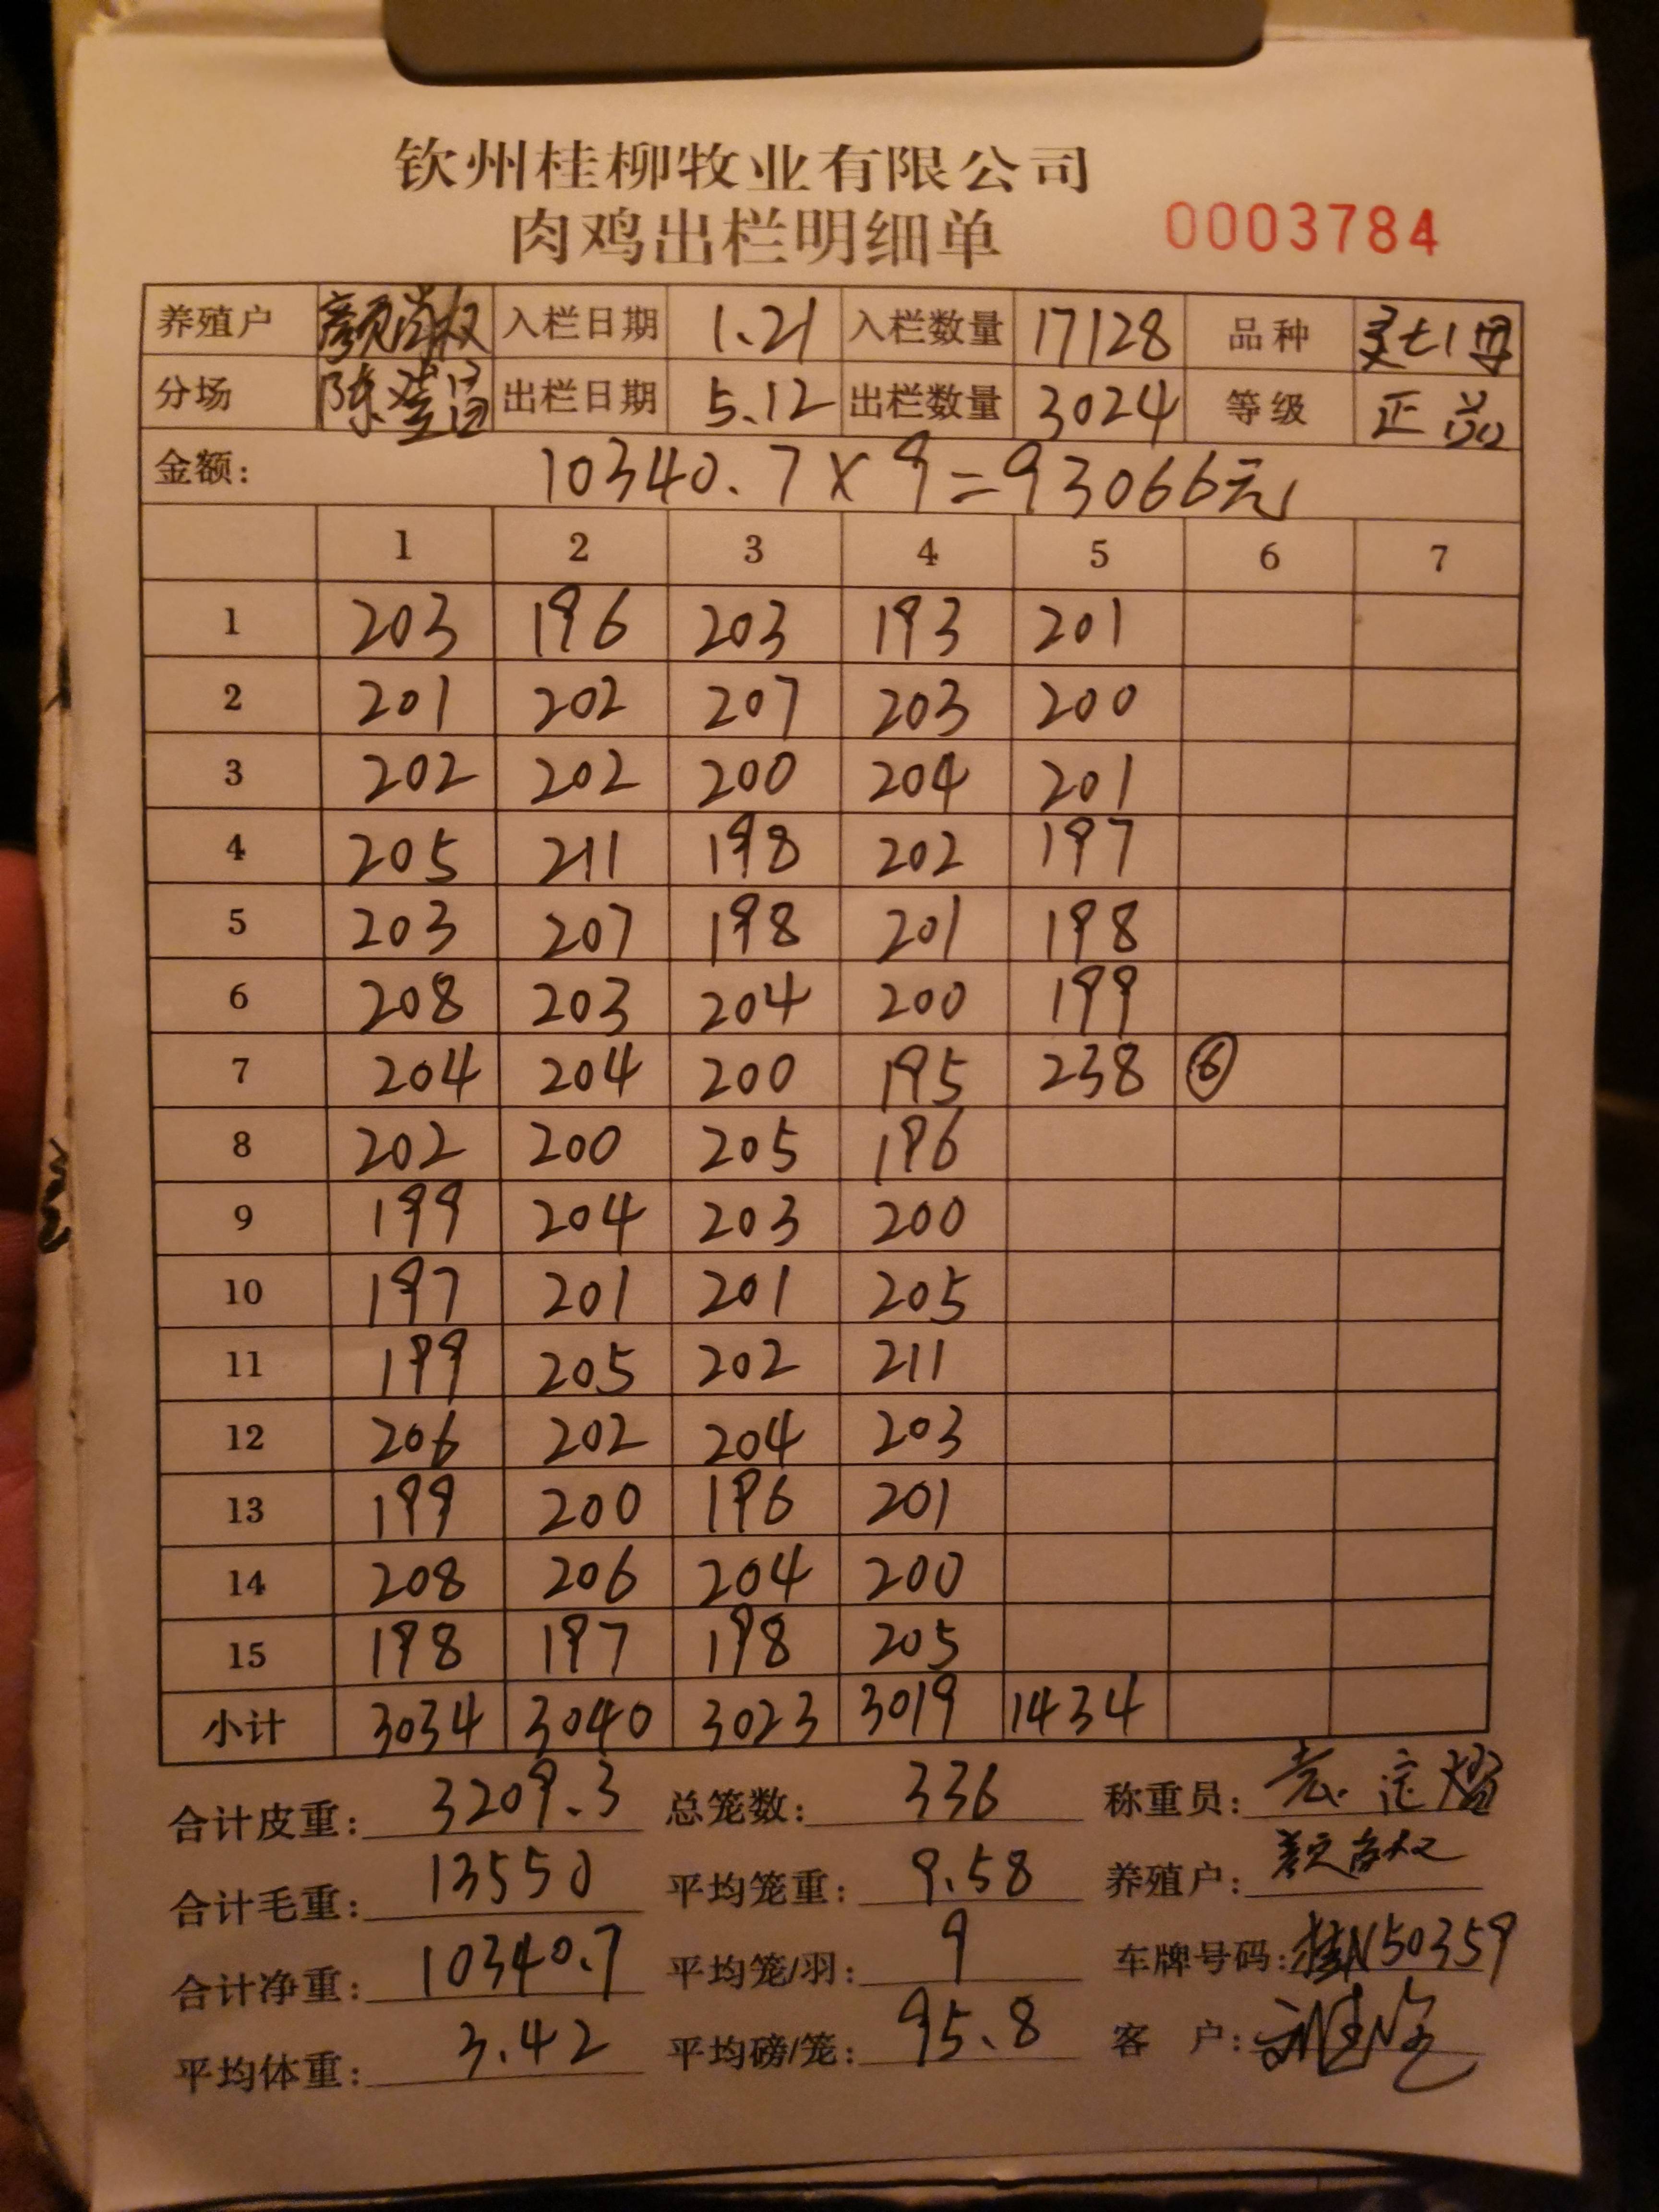 钦州桂柳牧业有限公司
肉鸡出栏明细单 0003784
养殖户 入栏日期 1.21 入栏数量 17128 品种
分场 出栏日期 5.12 出栏数量 3024 等级 正品
金额: 10340.7×9=93066元
1 2 3 4 5 6 7
1 203 196 203 193 201
2 201 202 207 203 200
3 202 202 200 204 201
4 205 211 198 202 197
5 203 207 198 201 198
6 208 203 204 200 199
7 204 204 200 195 238 ⑥
8 202 200 205 196
9 199 204 203 200
10 197 201 201 205
11 199 205 202 211
12 206 202 204 203
13 199 200 196 201
14 208 206 204 200
15 198 197 198 205
小计 3034 3040 3023 3019 1434
合计皮重: 3209.3 总笼数: 336 称重员:
合计毛重: 13550 平均笼重: 9.58 养殖户:
合计净重: 10340.7 平均笼/羽: 9 车牌号码: 桂N50359
平均体重: 3.42 平均磅/笼: 95.8 客 户: